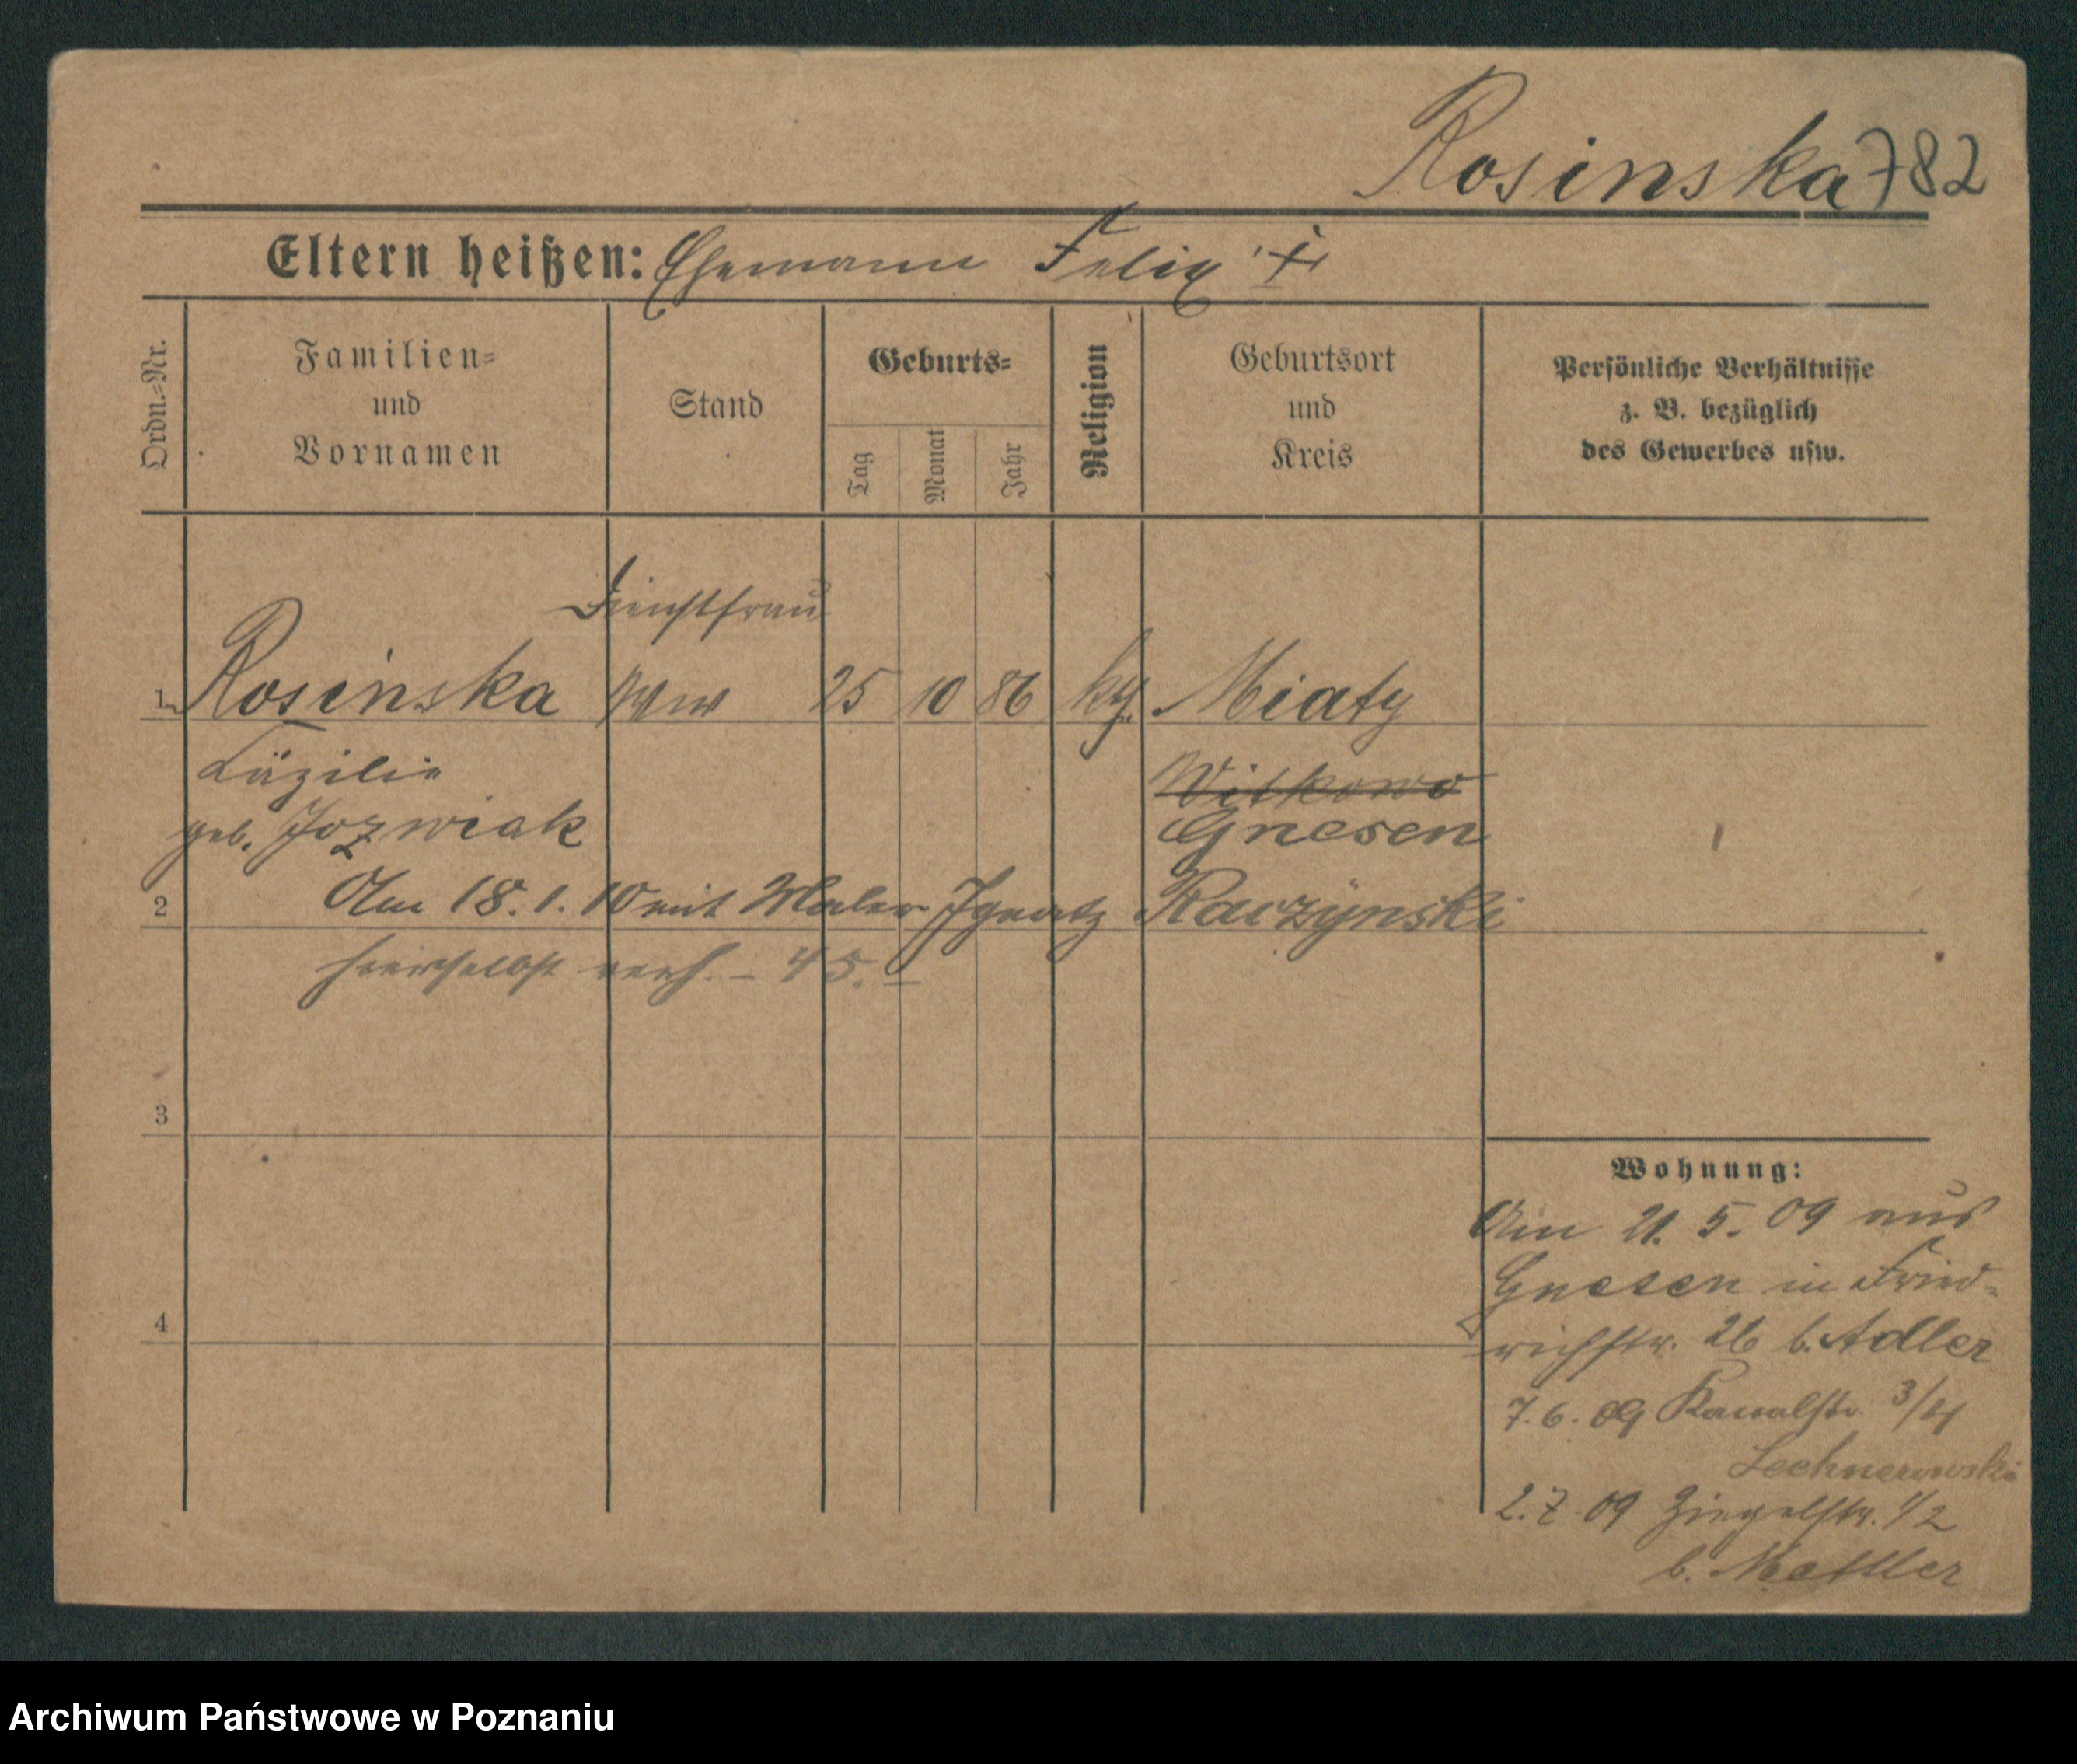 Rosinska 782
Eltern heißen: Ehemann Felix †
Ordn.-Nr.
Familien-
und
Vornamen
Stand
Geburts-
Tag
Monat
Jahr
Religion
Geburtsort
und
Kreis
Persönliche Verhältnisse
z. B. bezüglich
des Gewerbes usw.
Dienstfrau
1 Rosinska Ww 25 10 86 kth. Miaty
Zäzilie Witkowo
geb. Jozwiak Gnesen
2 Am 18. 1. 10 mit Maler Ignatz Raczynski
hierselbst verh. – 45. –
3
4
Wohnung:
Am 21. 5. 09 aus
Gnesen in Fried-
richstr. 26 b. Adler
7. 6. 09 Kanalstr. 3/4
2. 7. 09 Ziegelstr. 1/2
b.
Archiwum Państwowe w Poznaniu